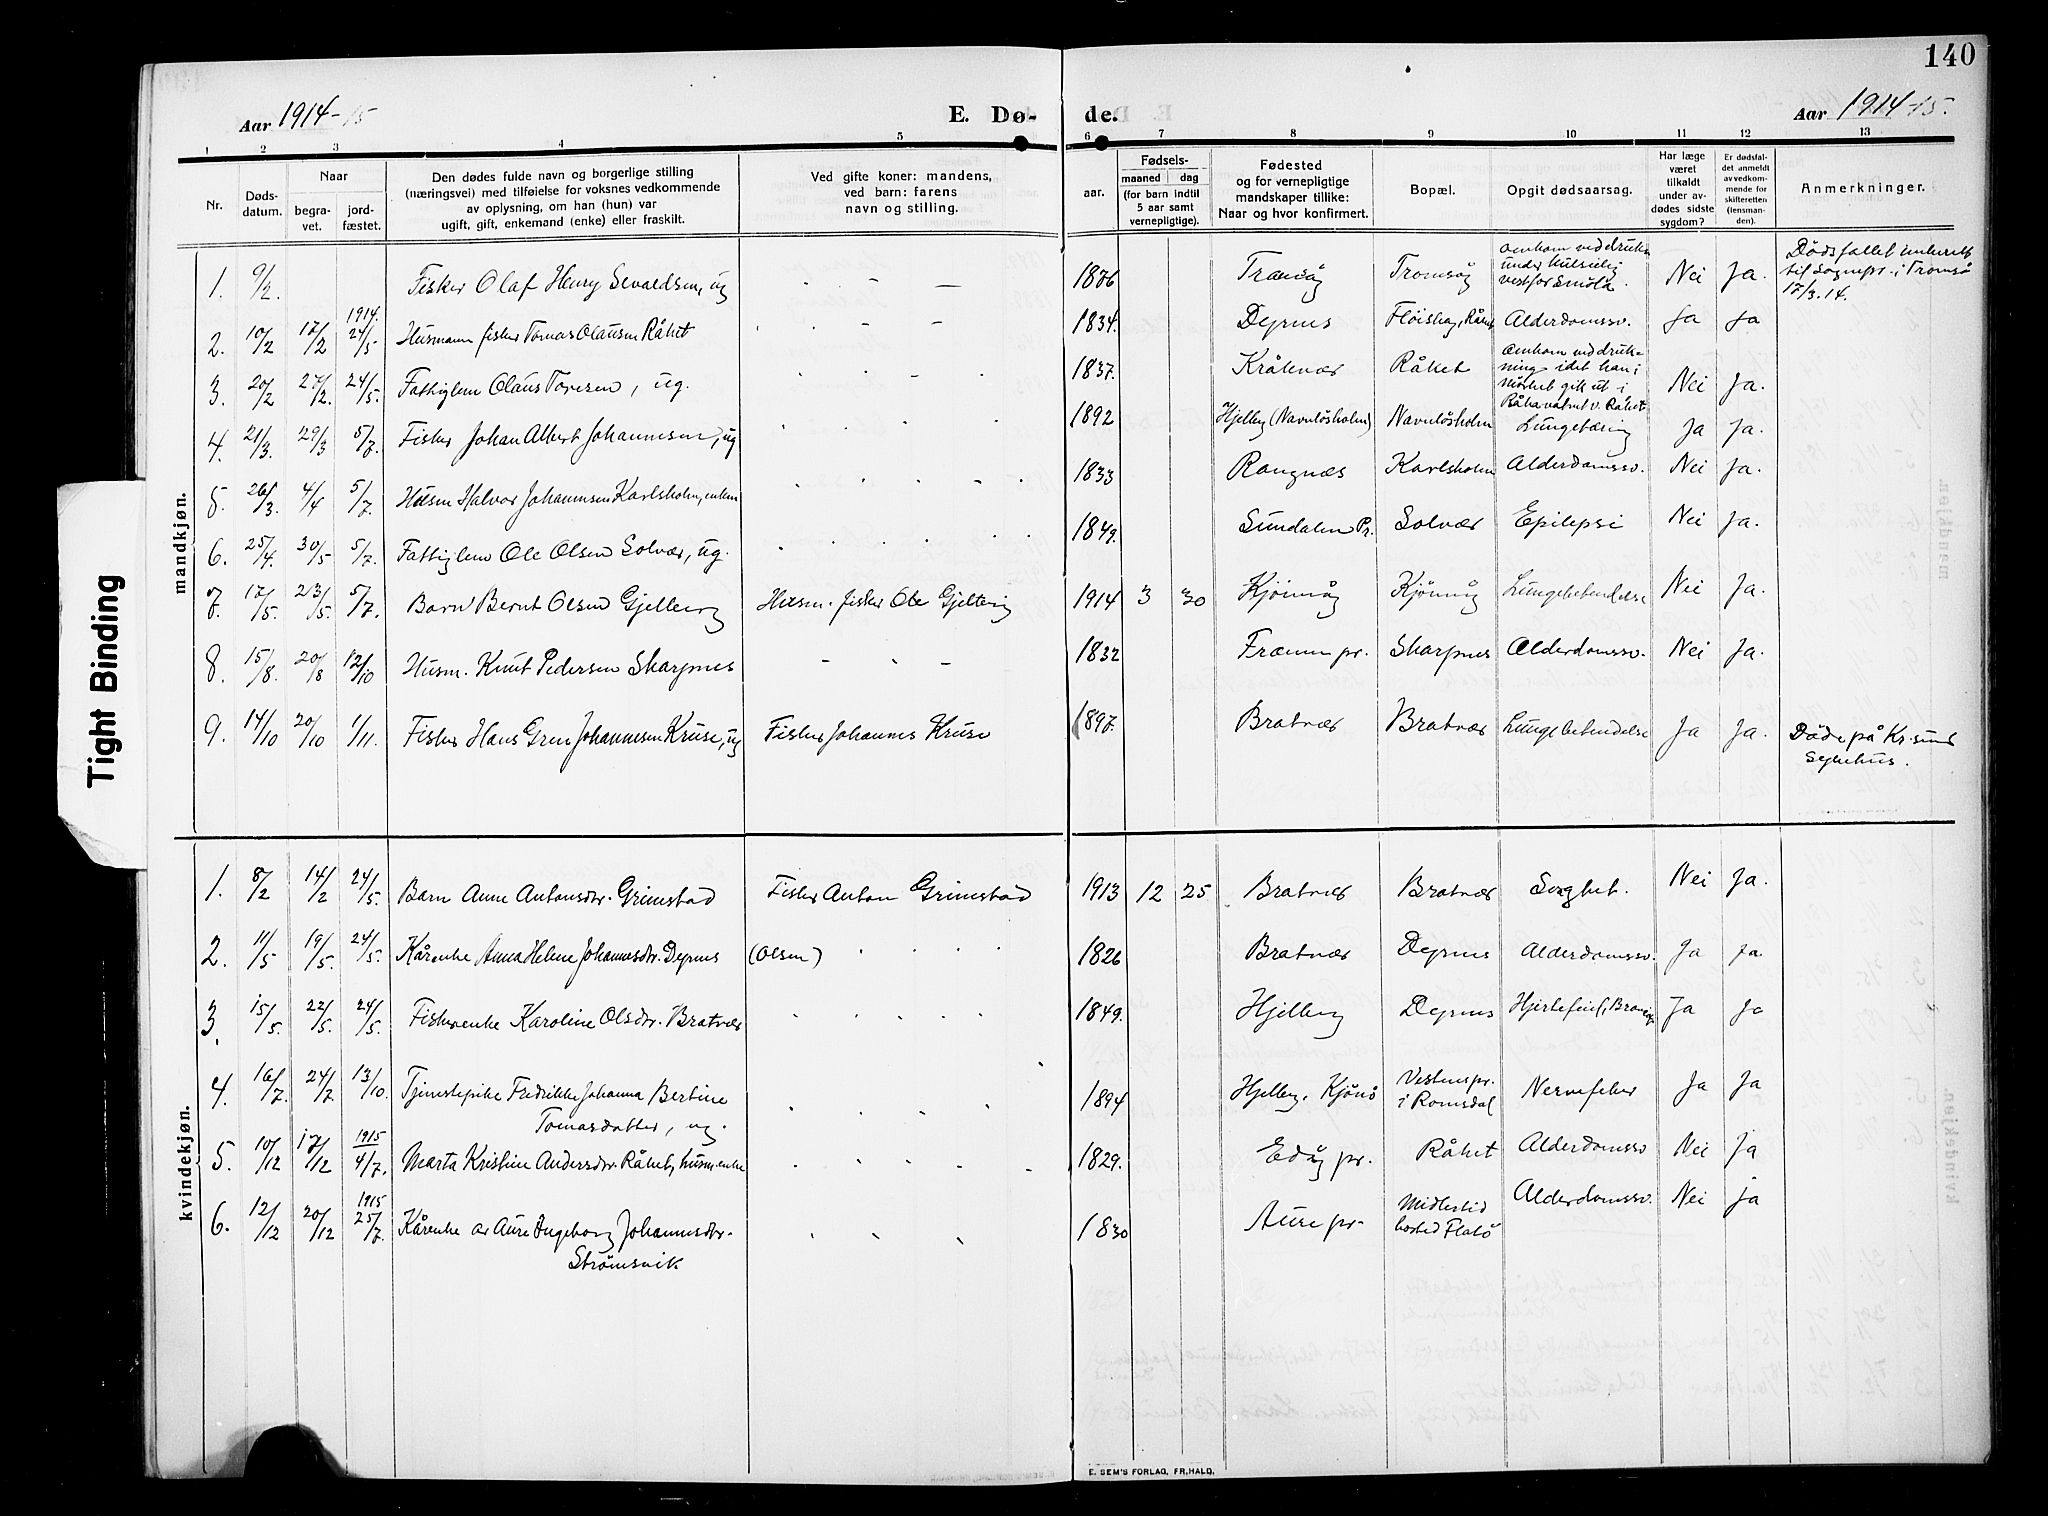 140
Aar 1914-15
E. Dø-
de.
Aar 1914-15.
1 2 3 4 5 6 7 8 9 10 11 12 13
Nr.
Døds-
datum.
Naar
begra-
vet.
jord-
fæstet.
Den dødes fulde navn og borgerlige stilling
(næringsvei) med tilføielse for voksnes vedkommende
av oplysning, om han (hun) var
ugift, gift, enkemand (enke) eller fraskilt.
Ved gifte koner: mandens,
ved barn: farens
navn og stilling.
aar.
Fødsels-
maaned dag
(for barn indtil
5 aar samt
vernepligtige).
Fødested
og for vernepligtige
mandskaper tillike:
Naar og hvor konfirmert.
Bopæl.
Opgit dødsaarsag.
Har læge
været
tilkaldt
under av-
dødes sidste
sygdom?
Er dødsfal-
det anmeldt
av vedkom-
mende for
skifteretten
(lensman-
den).
Anmerkninger.
mandkjøn.
1. 9/2. Fisker Olaf Henry Sevaldsen, ug 1876 Tromsøy Tromsøy omkom ved drukn. under kulseilig vest for Smøla. Nei Ja. Dødsfallet innberett til sognepr. i Tromsø 17/3.14.
2. 10/2 17/2 1914. 24/5 Husmann fisker Tomas Olausen Råket 1834. Dyrnes Fløishaug, Råket Alderdomssv. Ja Ja
3. 20/2 27/2. 24/5. Fattiglem Olaus Toresen, ug. 1837. Kråkvær Råket omkom ved druk-
ning idet han i
mørket gik ut i
Råkavatnet v. Råket Nei Ja.
4. 21/3. 29/3 5/7. Fisker Johan Albert Johannesen, ug 1892 Hjelbey (Navnløsholm) Navnløsholm Lungetæring Ja Ja.
5. 26/3. 4/4 5/7. Husm Halvor Johannesen Karlsholm, enkem 1833 Rangnæs Karlsholm Alderdomssv. Nei Ja.
6. 25/4. 30/5 5/7. Fattiglem Ole Olsen Solvær, ug. 1849. Sundalen Pr. Solvær Epilepsi Nei Ja.
7. 17/5. 23/5. 5/7. Barn Bernt Olsen Gjelberg Husm. fisker Ole Gjelberg 1914 3 30 Kjønnøy Kjønnøy Lungebetendelse Nei Ja.
8. 15/8. 20/8 12/10 Husm. Knut Pedersen Skarpnes 1832 Frænen pr. Skarpnes Alderdomssv. Nei Ja.
9. 14/10 20/10 1/11. Fisker Hans Gren Johannesen Kruse, ug Fisker Johannes Kruse 1897. Bratvær Bratvær Lungebetendelse Ja Ja. Døde på Kr.sund
sykehus.
kvindekjøn.
1. 8/2 14/2 24/5. Barn Anne Antonsdtr. Grimstad Fisker Anton Grimstad 1913 12 25 Bratvær Bratvær Nei Ja.
2. 11/5 19/5. 24/5. Kårenke Anna Helene Johannesdtr. Dyrnes (Olsen) 1826 Bratvær Dyrnes Alderdomssv. Ja Ja.
3. 15/5. 22/5. 24/5. Fiskerenke Karoline Olsdtr. Bratvær 1849. Hjelbey Dyrnes Hjertefeil, Ja Ja
4. 16/7. 24/7. 13/10 Tjenestepike Fredrikke Johanna Bertine
Tomasdatter, ug. 1894 Hjelbey, Kjønø Vestnes pr.
i Romsdal Nervefeber Ja Ja
5. 10/12 17/12 1915 4/7. Marta Kristine Andersdtr. Råket, husm.enke 1829. Edøy pr. Råket Alderdomssv Nei Ja
6. 12/12 20/12 1915 25/7. Kårenke av Aure Ingeborg Johannesdtr.
Strømsvik 1830 Aure pr. Midlertid
bosted Flatø Alderdomssv. Nei Ja
E. SEM'S FORLAG, FR.HALD.
Tight Binding